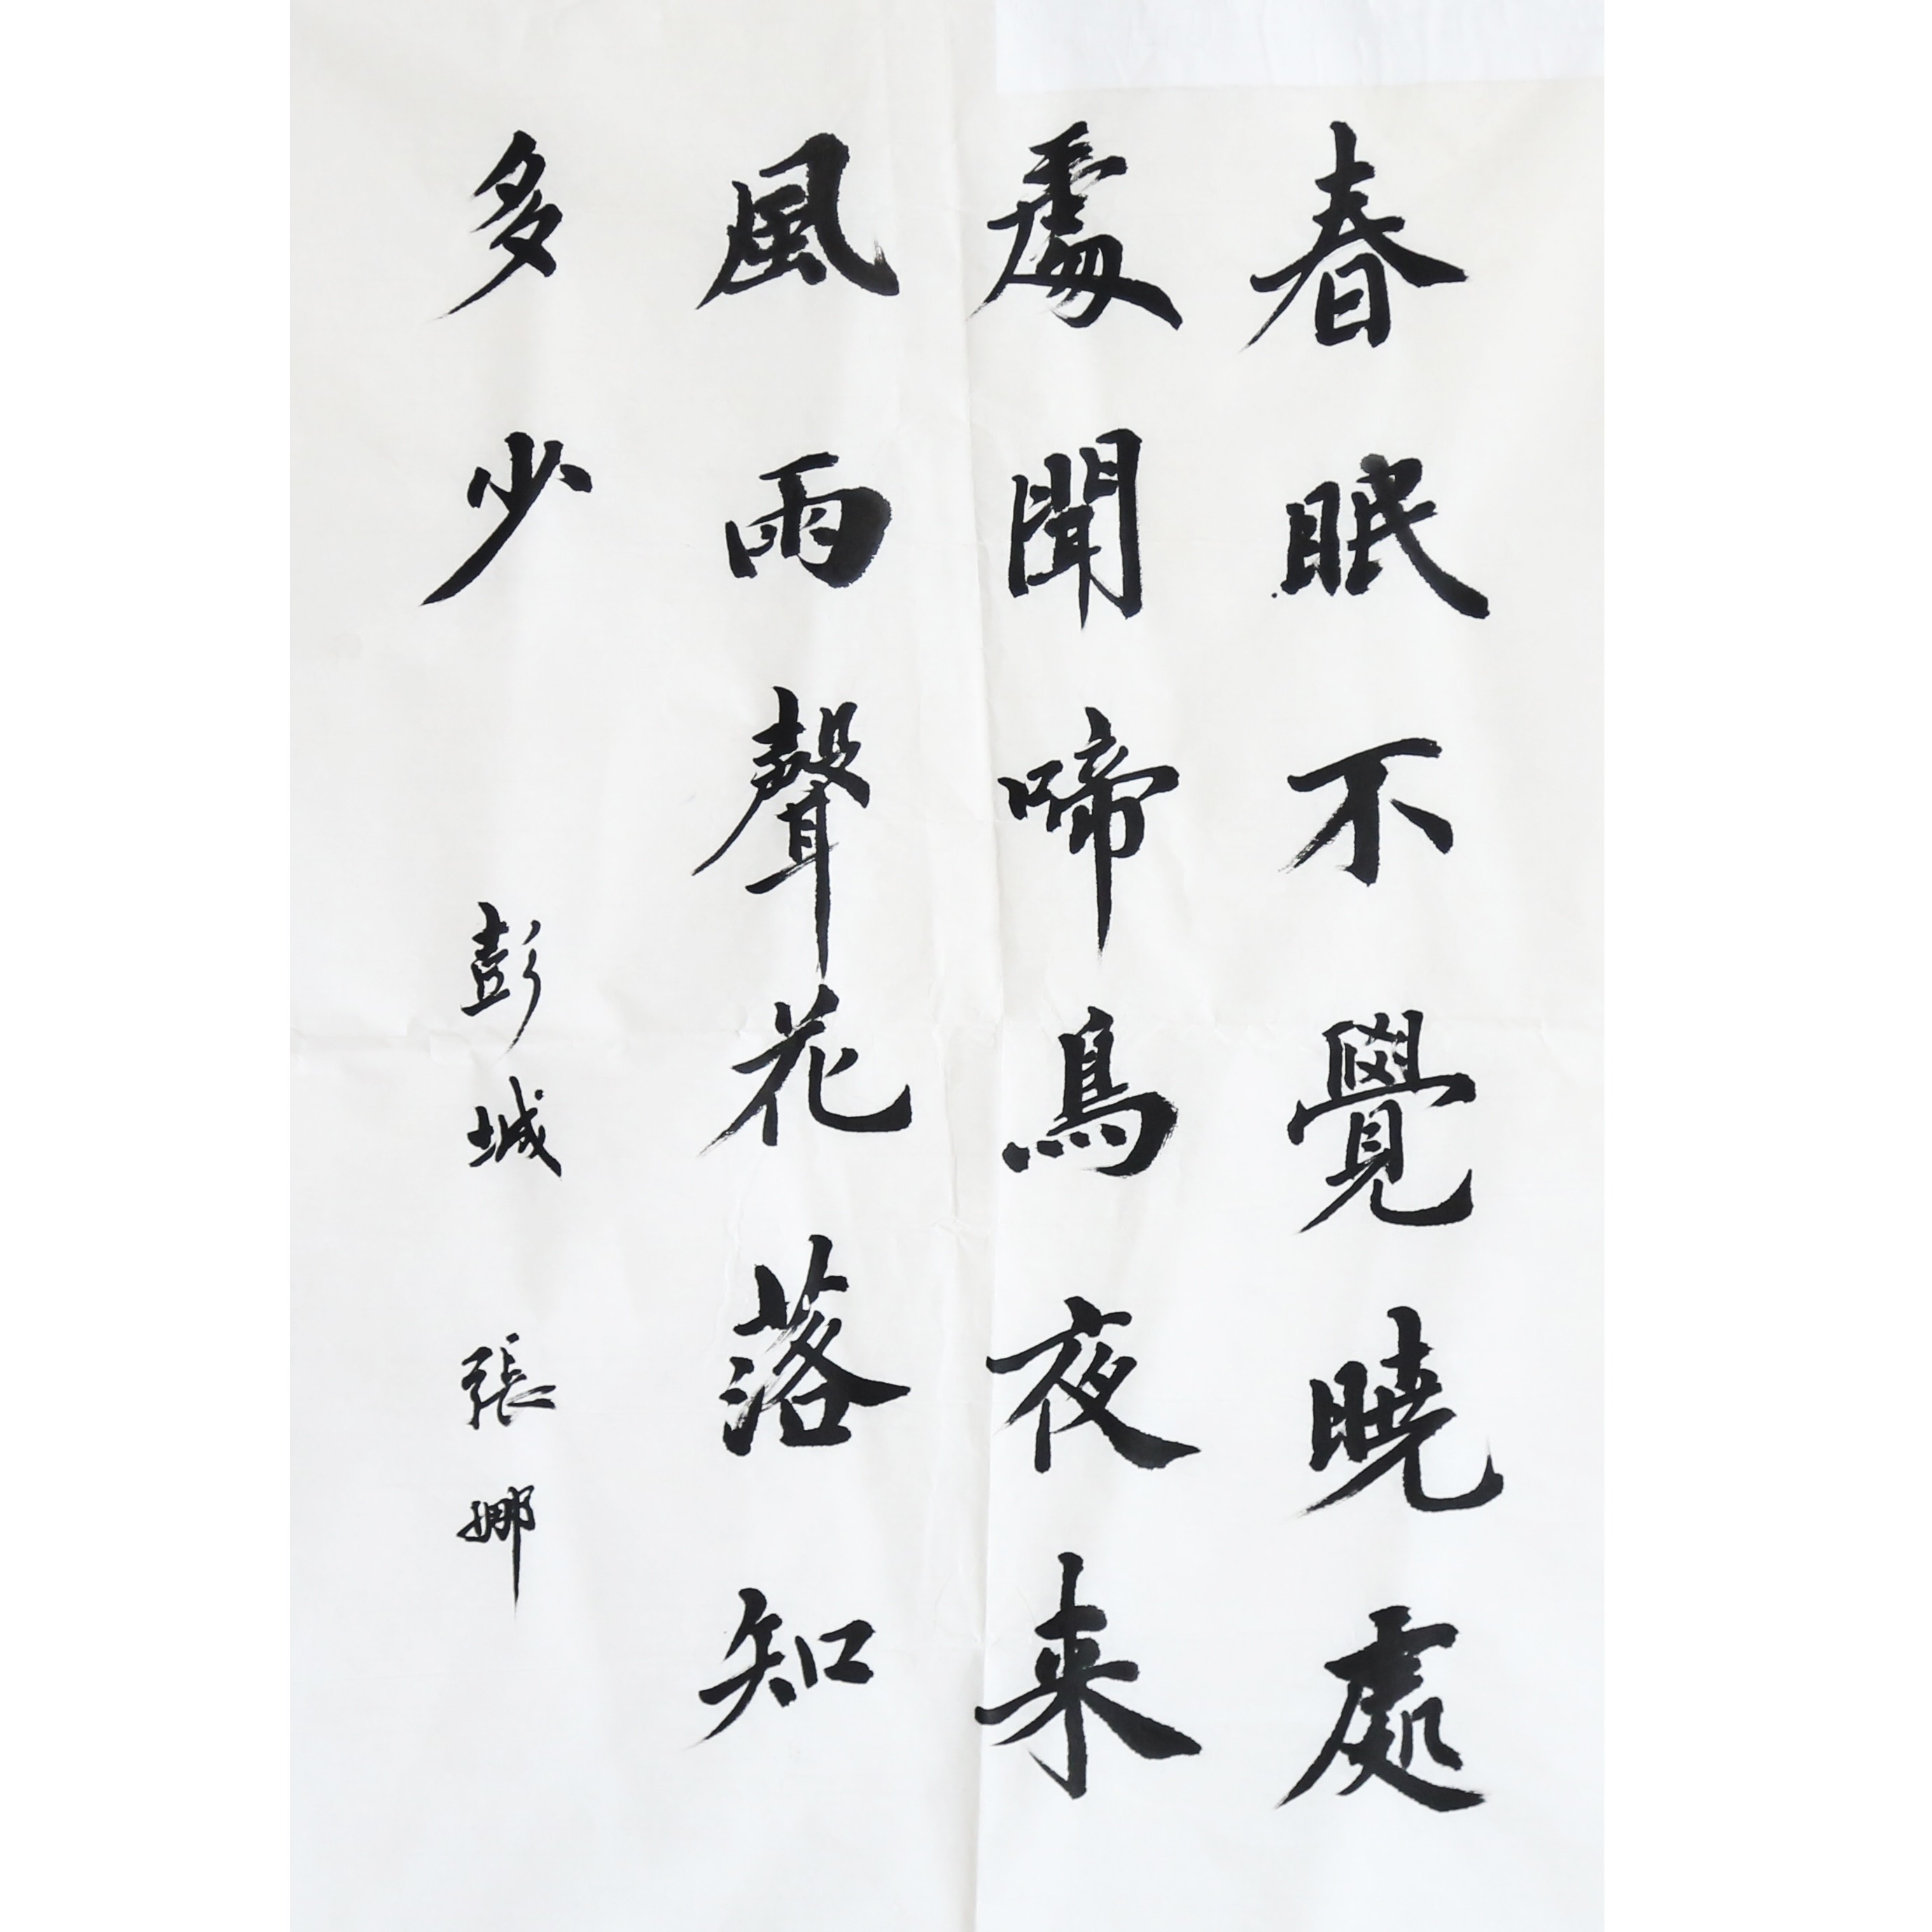 春眠不覺曉處
處聞啼鳥夜来
風雨聲花落知
多少
彭城 張娜